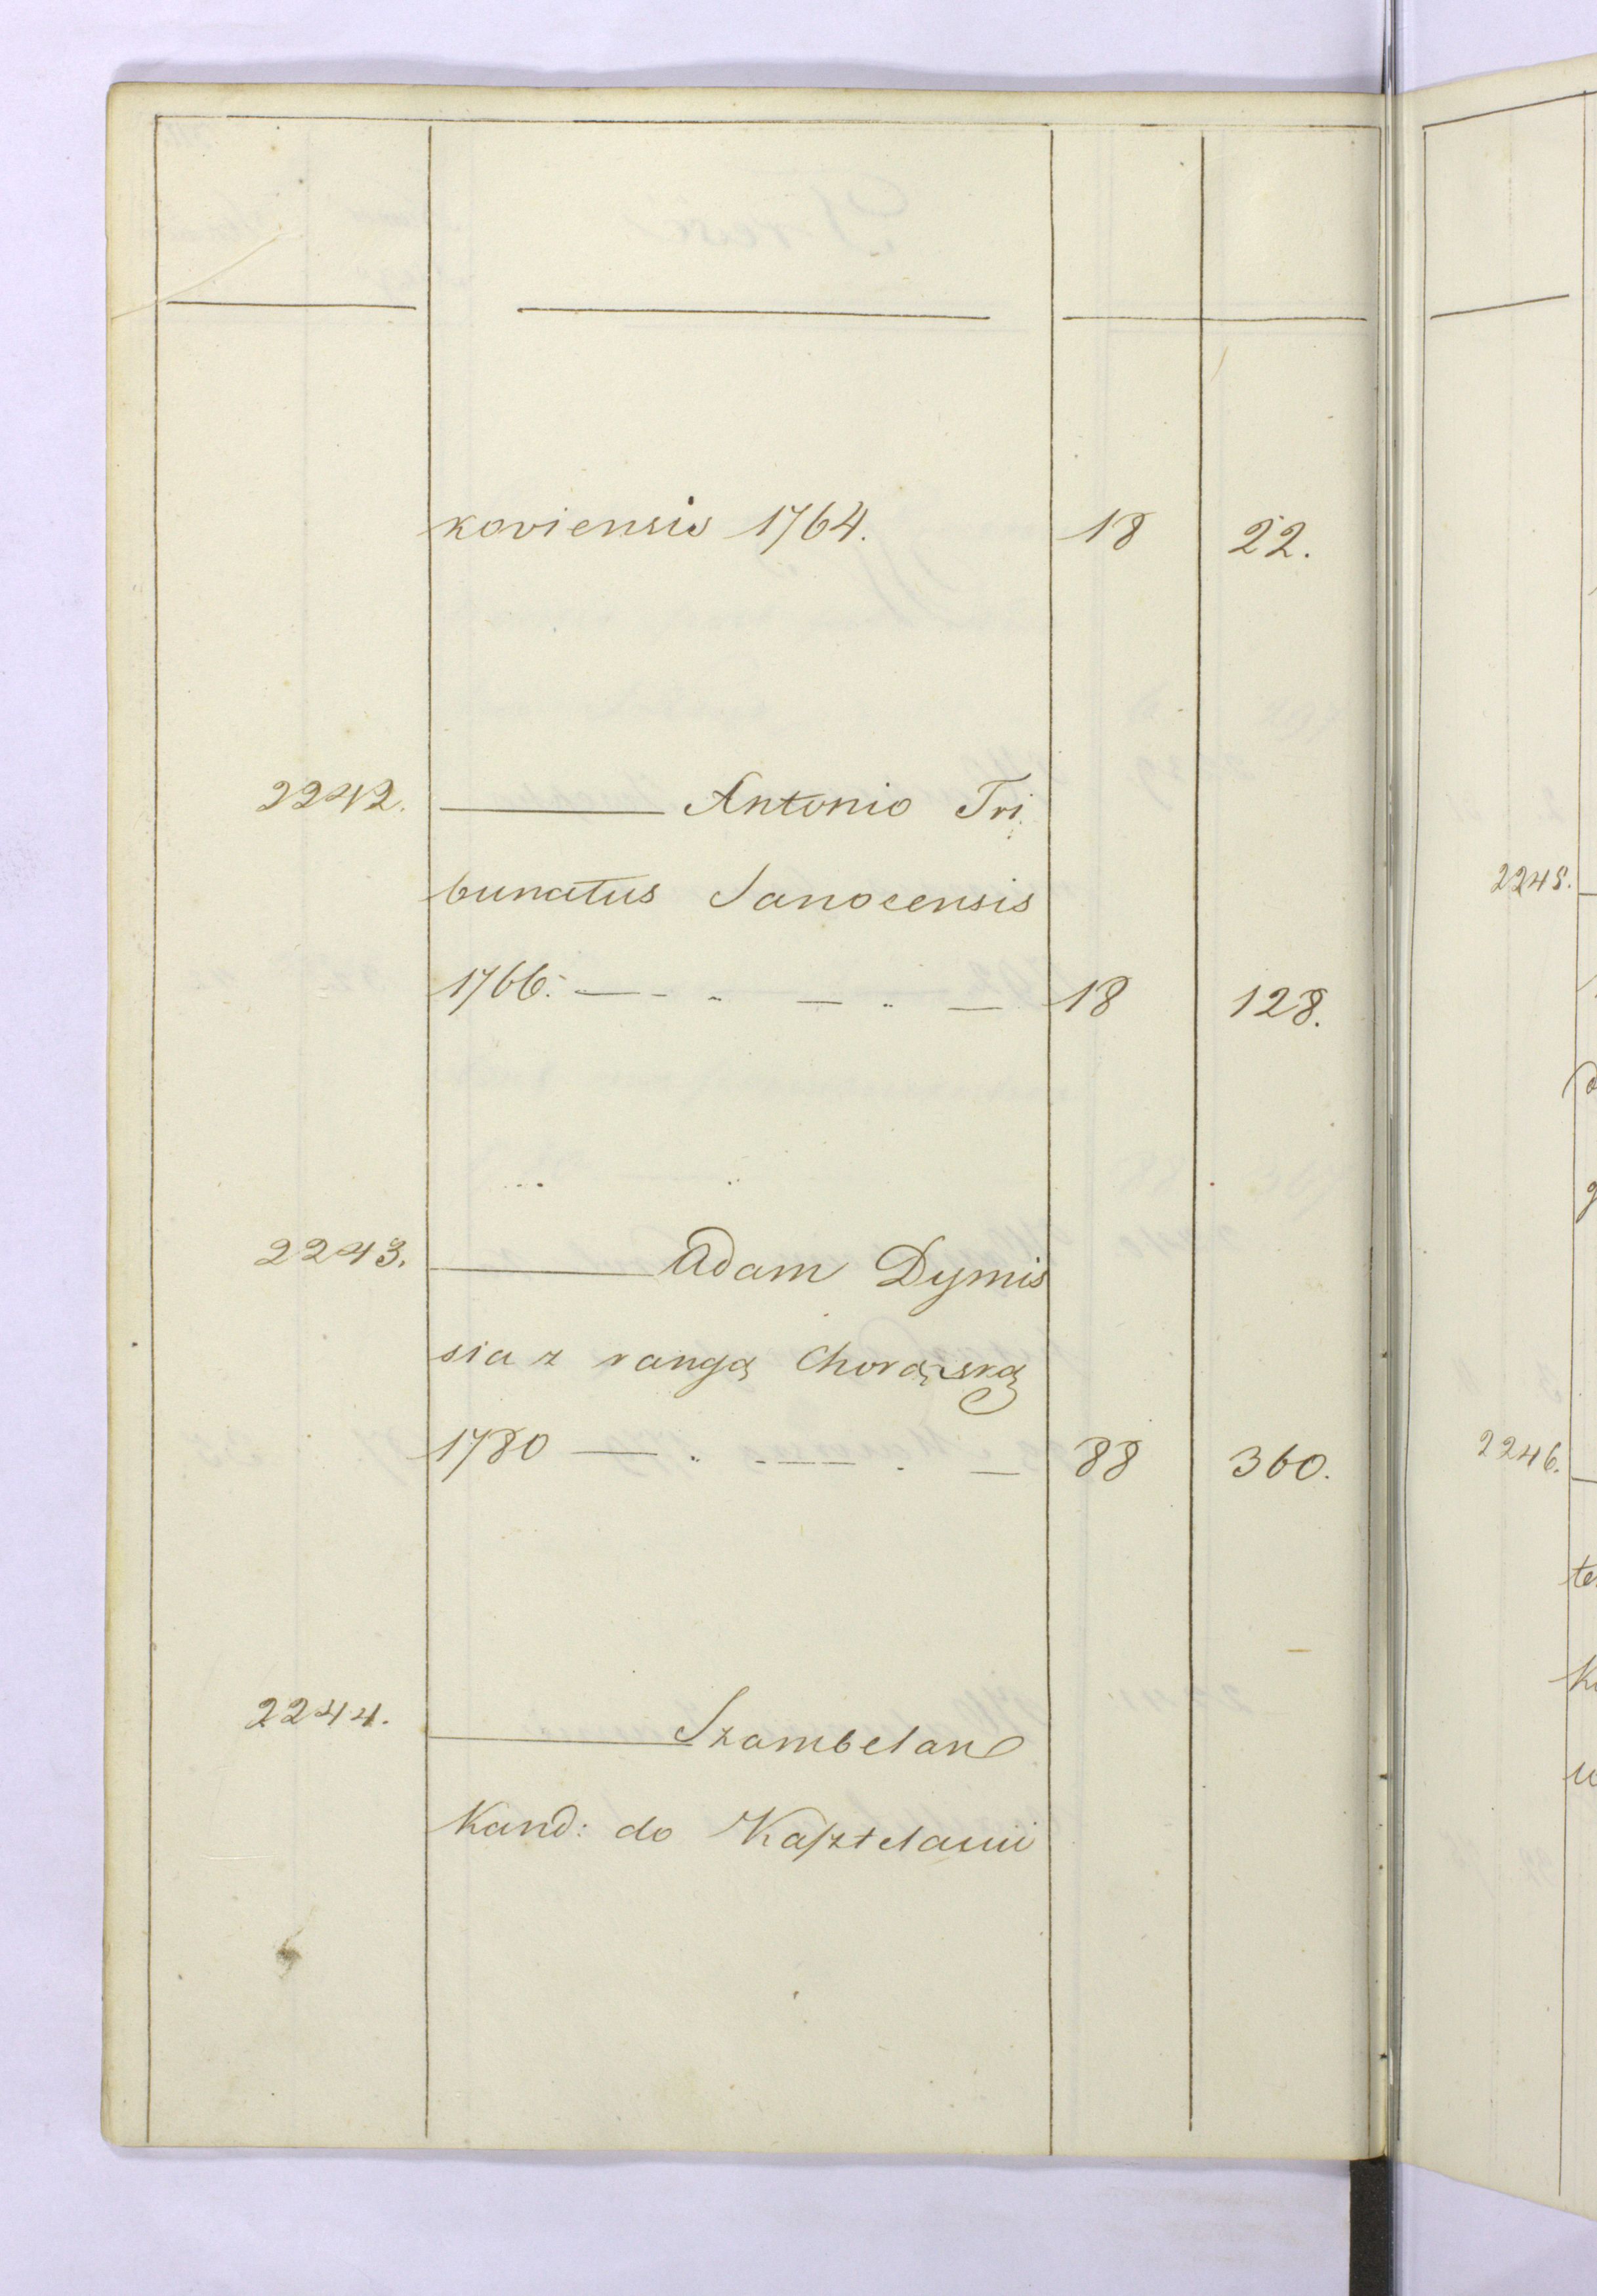 koviensis 1764. 18 22.
2242. ——— Antonio Tri
bunatus Sanocensis
1766. — - .. — .. — 18 128.
2243. ——— Adam Dymis
sia z rangą Chorąską
1780 — . - — — . — 88 360.
2244. ——— Szambelan
Kand: do Kasztelanii
2245.
2246.